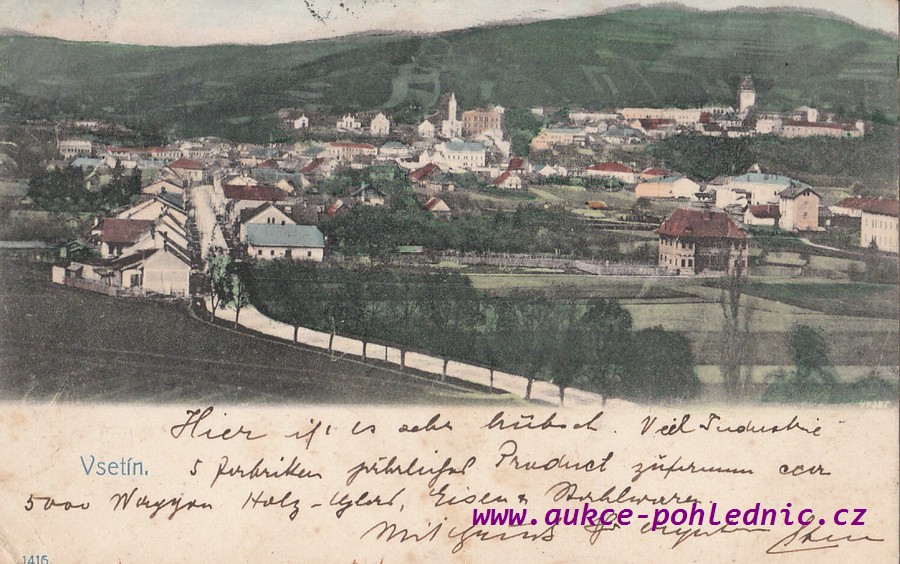 Hier ist es sehr hübsch. Viel Industrie
Vsetín.
5 Fabriken jährliches Product zusammen
5000 Waggon Holz- Glas, Eisen & Stahlware.
www.aukce-pohlednic.cz
Mit
1416